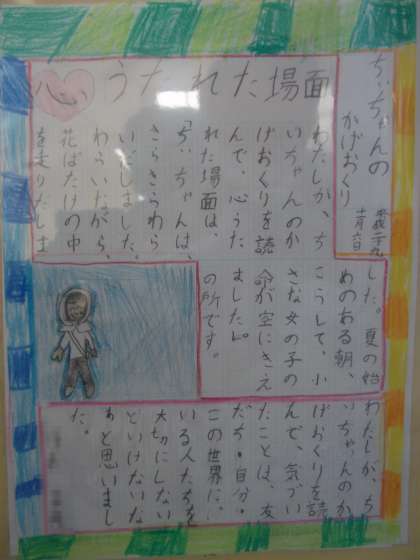 ちいちゃんの
かげおくり
平成二十九
十月六日
心うたれた場面
わたしが、ち
いちゃんのか
げおくりを読
んで、心うた
れた場面は、
「ちいちゃんは、
きらきらわら
いだしました。
わらいながら、
花ばたけの中
を走りだしま
した。夏の始
めのある朝、
こうして、小
さな女の子の
命が空にきえ
ました」。
の所です。
わたしが、ち
いちゃんのか
げおくりを読
んで、気づい
たことは、友
だち・自分・
この世界に、
いる人たちを
大切にしない
といけないな
あと思いまし
た。